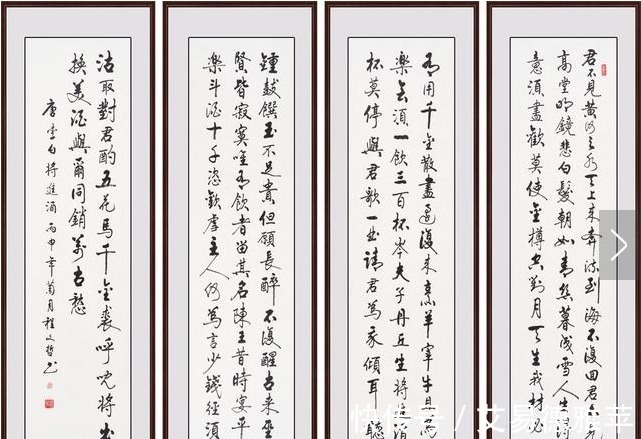 君不見黄河之水天上来奔流到海不復回君
高堂明鏡悲白髮朝如青丝暮成雪人生
意須盡歡莫使金樽空對月天生我材必
有用千金散盡還復来烹羊宰牛且
樂會須一飲三百杯岑夫子丹丘生將
杯莫停與君歌一曲請君為我傾耳聽
鍾鼓饌玉不足貴但願長醉不復醒古来聖
賢皆寂寞唯有飲者留其名陳王昔時宴平
樂斗酒十千恣歡虐主人何為言少錢徑須
沽取對君酌五花馬千金裘呼兒將出
換美酒與爾同銷萬古愁
唐李白將進酒丙申年菊月程文哲书
快传号 / 艾易德雅苹